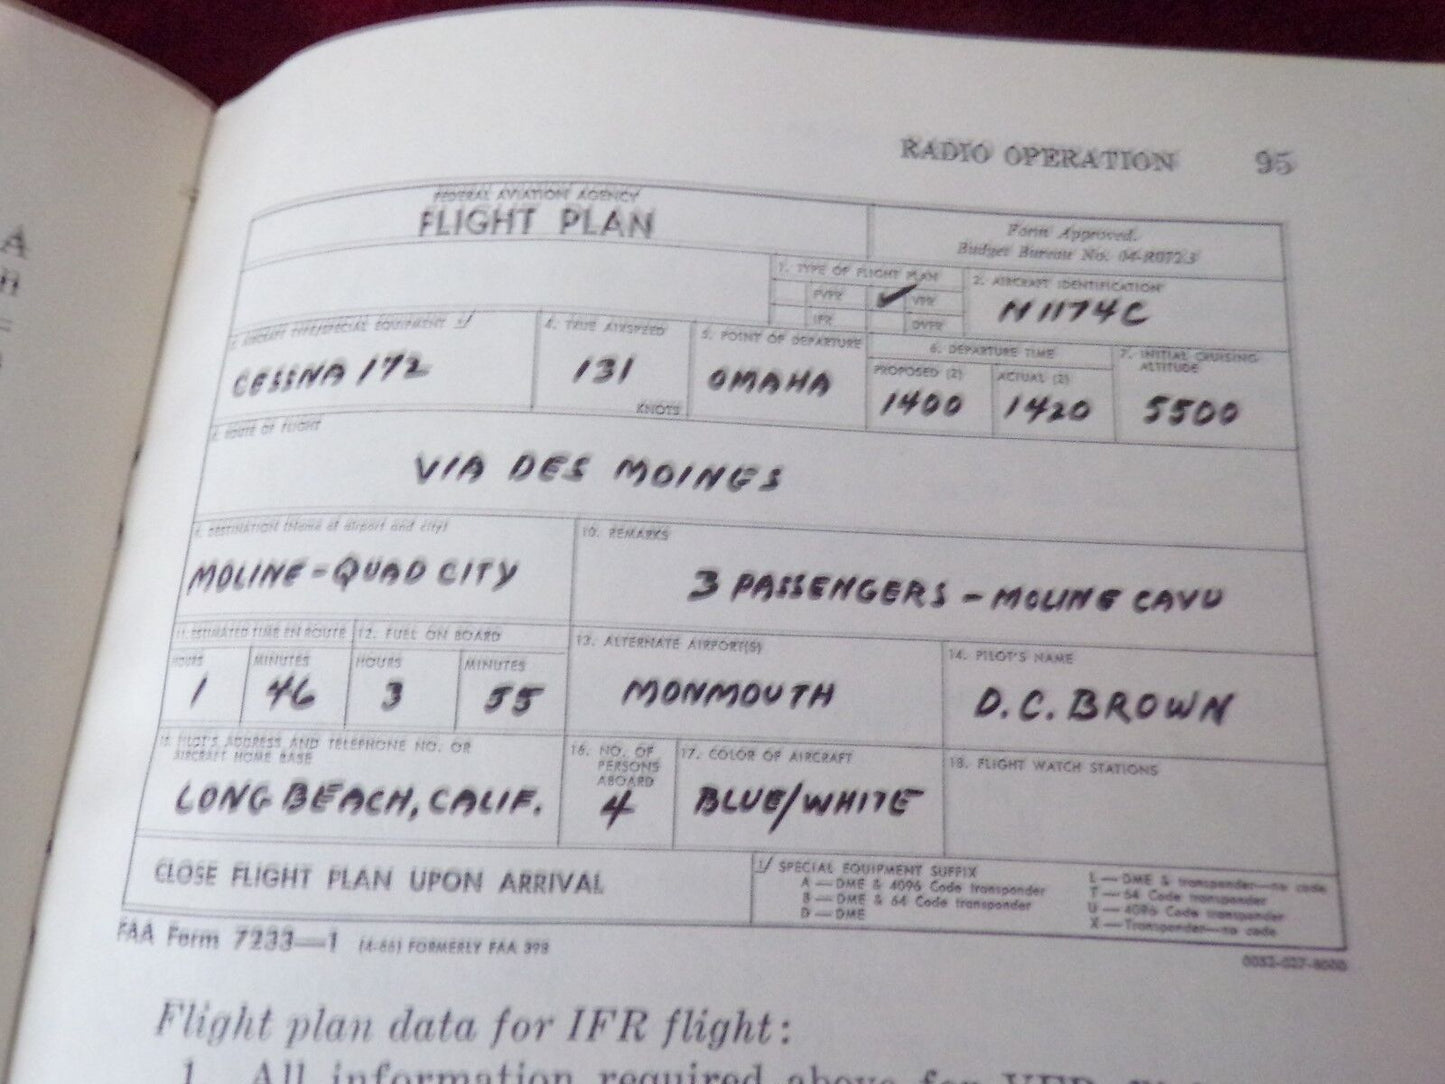 A
RADIO OPERATION 95
FEDERAL AVIATION AGENCY
FLIGHT PLAN
Form Approved.
Budget Bureau No. 04-R072.3
1. TYPE OF FLIGHT PLAN
FVFR
VFR
IFR
DVFR
2. AIRCRAFT IDENTIFICATION
N1174C
3. AIRCRAFT TYPE/SPECIAL EQUIPMENT 1/
CESSNA 172
4. TRUE AIRSPEED
131
KNOTS
5. POINT OF DEPARTURE
OMAHA
6. DEPARTURE TIME
PROPOSED (Z)
1400
ACTUAL (Z)
1420
7. INITIAL CRUISING
ALTITUDE
5500
8. ROUTE OF FLIGHT
VIA DES MOINES
9. DESTINATION (Name of airport and city)
MOLINE-QUAD CITY
10. REMARKS
3 PASSENGERS - MOLINE CAVU
11. ESTIMATED TIME EN ROUTE
HOURS
1
MINUTES
46
12. FUEL ON BOARD
HOURS
3
MINUTES
55
13. ALTERNATE AIRPORT(S)
MONMOUTH
14. PILOT'S NAME
D.C. BROWN
15. PILOT'S ADDRESS AND TELEPHONE NO. OR
AIRCRAFT HOME BASE
LONG BEACH, CALIF.
16. NO. OF
PERSONS
ABOARD
4
17. COLOR OF AIRCRAFT
BLUE/WHITE
18. FLIGHT WATCH STATIONS
CLOSE FLIGHT PLAN UPON ARRIVAL
1/ SPECIAL EQUIPMENT SUFFIX
A — DME & 4096 Code transponder
B — DME & 64 Code transponder
D — DME
L — DME & transponder—no code
T — 64 Code transponder
U — 4096 Code transponder
X — Transponder—no code
FAA Form 7233—1 (4-66) FORMERLY FAA 398
0052-027-8000
Flight plan data for IFR flight:
1. All information required above for VFR